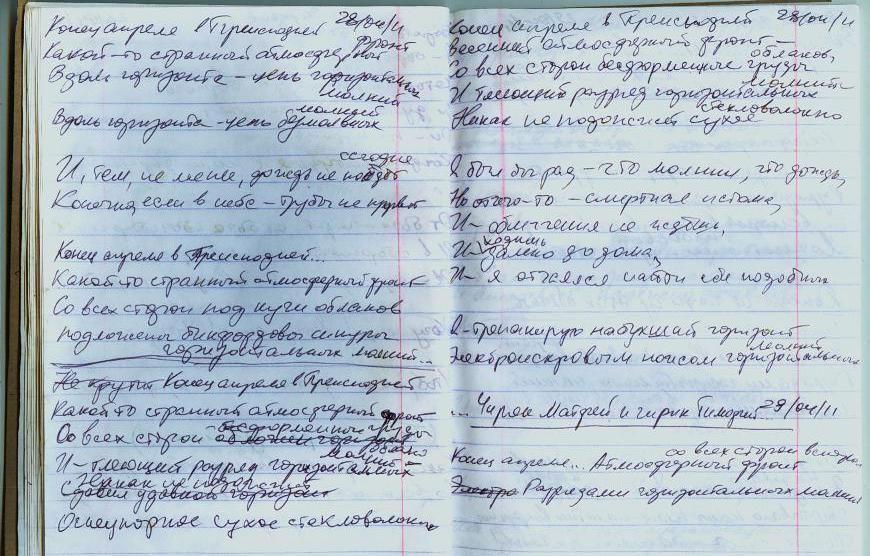 Конец апреля в Преисподней 28/04/11
Какой-то странный атмосферный фронт
Вдоль горизонта - цепь горизонтальных молний
Вдоль горизонта - цепь безмолвных молний
И, тем, не менее, дождь не сегодня
Конечно, если в небе - трубы не
Конец апреля в Преисподней...
Какой то странный атмосферный фронт
Со всех сторон под кучи облаков
подложены бикфордовы шнуры
горизонтальных молний...
Конец апреля в Преисподней
Какой то странный атмосферный фронт
Со всех сторон бесформенные груды облако
И - тлеющий разряд горизонтальных молний
Никак не подожжет
Огнеупорное сухое стекловолокно
Конец апреля в Преисподней 28/04/11
Весенний атмосферный фронт -
Со всех сторон бесформенные груды облаков,
И тлеющий разряд горизонтальных молний
Никак не подожжет сухое стекловолокно
Я был бы рад - что молнии, что дождь,
Но отчего-то - смертная истома,
И - облегчения не
И - далеко до дома,
И - я отчаялся найти себе подобных
Я - трепанирую набухший горизонт
Электроискровым поиском горизонтальных молний
... Чирик Матфей и чирик Тимофей 29/04/11
Конец апреля... Атмосферный фронт со всех сторон
Разрядами горизонтальных молний